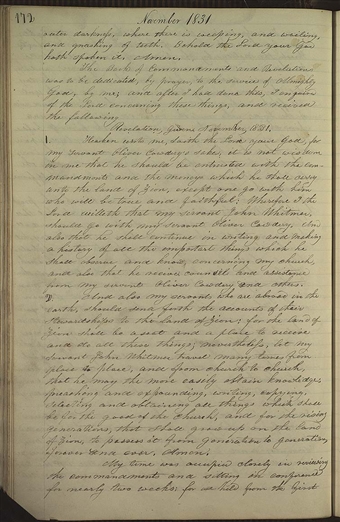 172
November 1831
outer darkness, where there is weeping, and wailing,
and gnashing of teeth. Behold the Lord your God
hath spoken it. Amen.
The Book of Commandments and Revelations
was to be dedicated, by prayer, to the service of Almighty
God, by me; and after I had done this, I enquired
of the Lord concerning these things, and received
the following
Revelation, Given November, 1831.
1. Hearken unto me, saith the Lord your God, for
my servant Oliver Cowdery's sake, it is not wisdom
in me that he should be entrusted with the com-
mandments and the moneys which he shall carry
unto the land of Zion, except one go with him
who will be true and faithful; Wherefore I the
Lord willeth that my servant John Whitmer,
should go with my servant Oliver Cowdery, and
also that he shall continue in writing and making
a history of all the important things which he
shall observe and know, concerning my church,
and also that he receive council and assistance
from my servant Oliver Cowdery and others.
2 And also my servants, who are abroad in the
earth, should send forth the accounts of their
stewardships to the land of Zion; for the land of
Zion shall be a seat and a place to receive
and do all these things; nevertheless, let my
servant John Whitmer travel many times from
place to place, and from church to church,
that he may the more easily obtain knowledge,
preaching and expounding, writing, copying,
selecting and obtaining all things which shall
be for the good of the church, and for the rising
generations, that shall grow up on the land
of Zion, to possess it from generation to generation,
forever and ever. Amen.
My time was occupied closely in reviewing
the commandments and sitting in conference
for nearly two weeks: for we held from the first